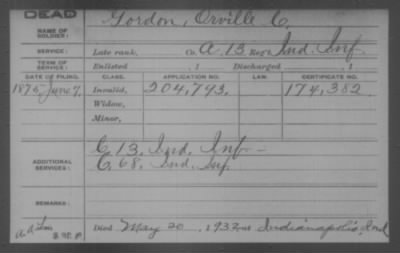 DEAD
NAME OF SOLDIER: Gordon, Orville C.
SERVICE: Late rank, Co. A. 13. Reg't Ind. Inf.
TERM OF SERVICE: Enlisted , 1 Discharged , 1
DATE OF FILING. CLASS. APPLICATION NO. LAW. CERTIFICATE NO.
1875 June 7. Invalid, 204,793. 174,382
Widow,
Minor,
ADDITIONAL SERVICES: C. 13. Ind. Inf.
C. 68. Ind. Inf.
REMARKS:
Died May 20, 1933, at Indianapolis, Ind